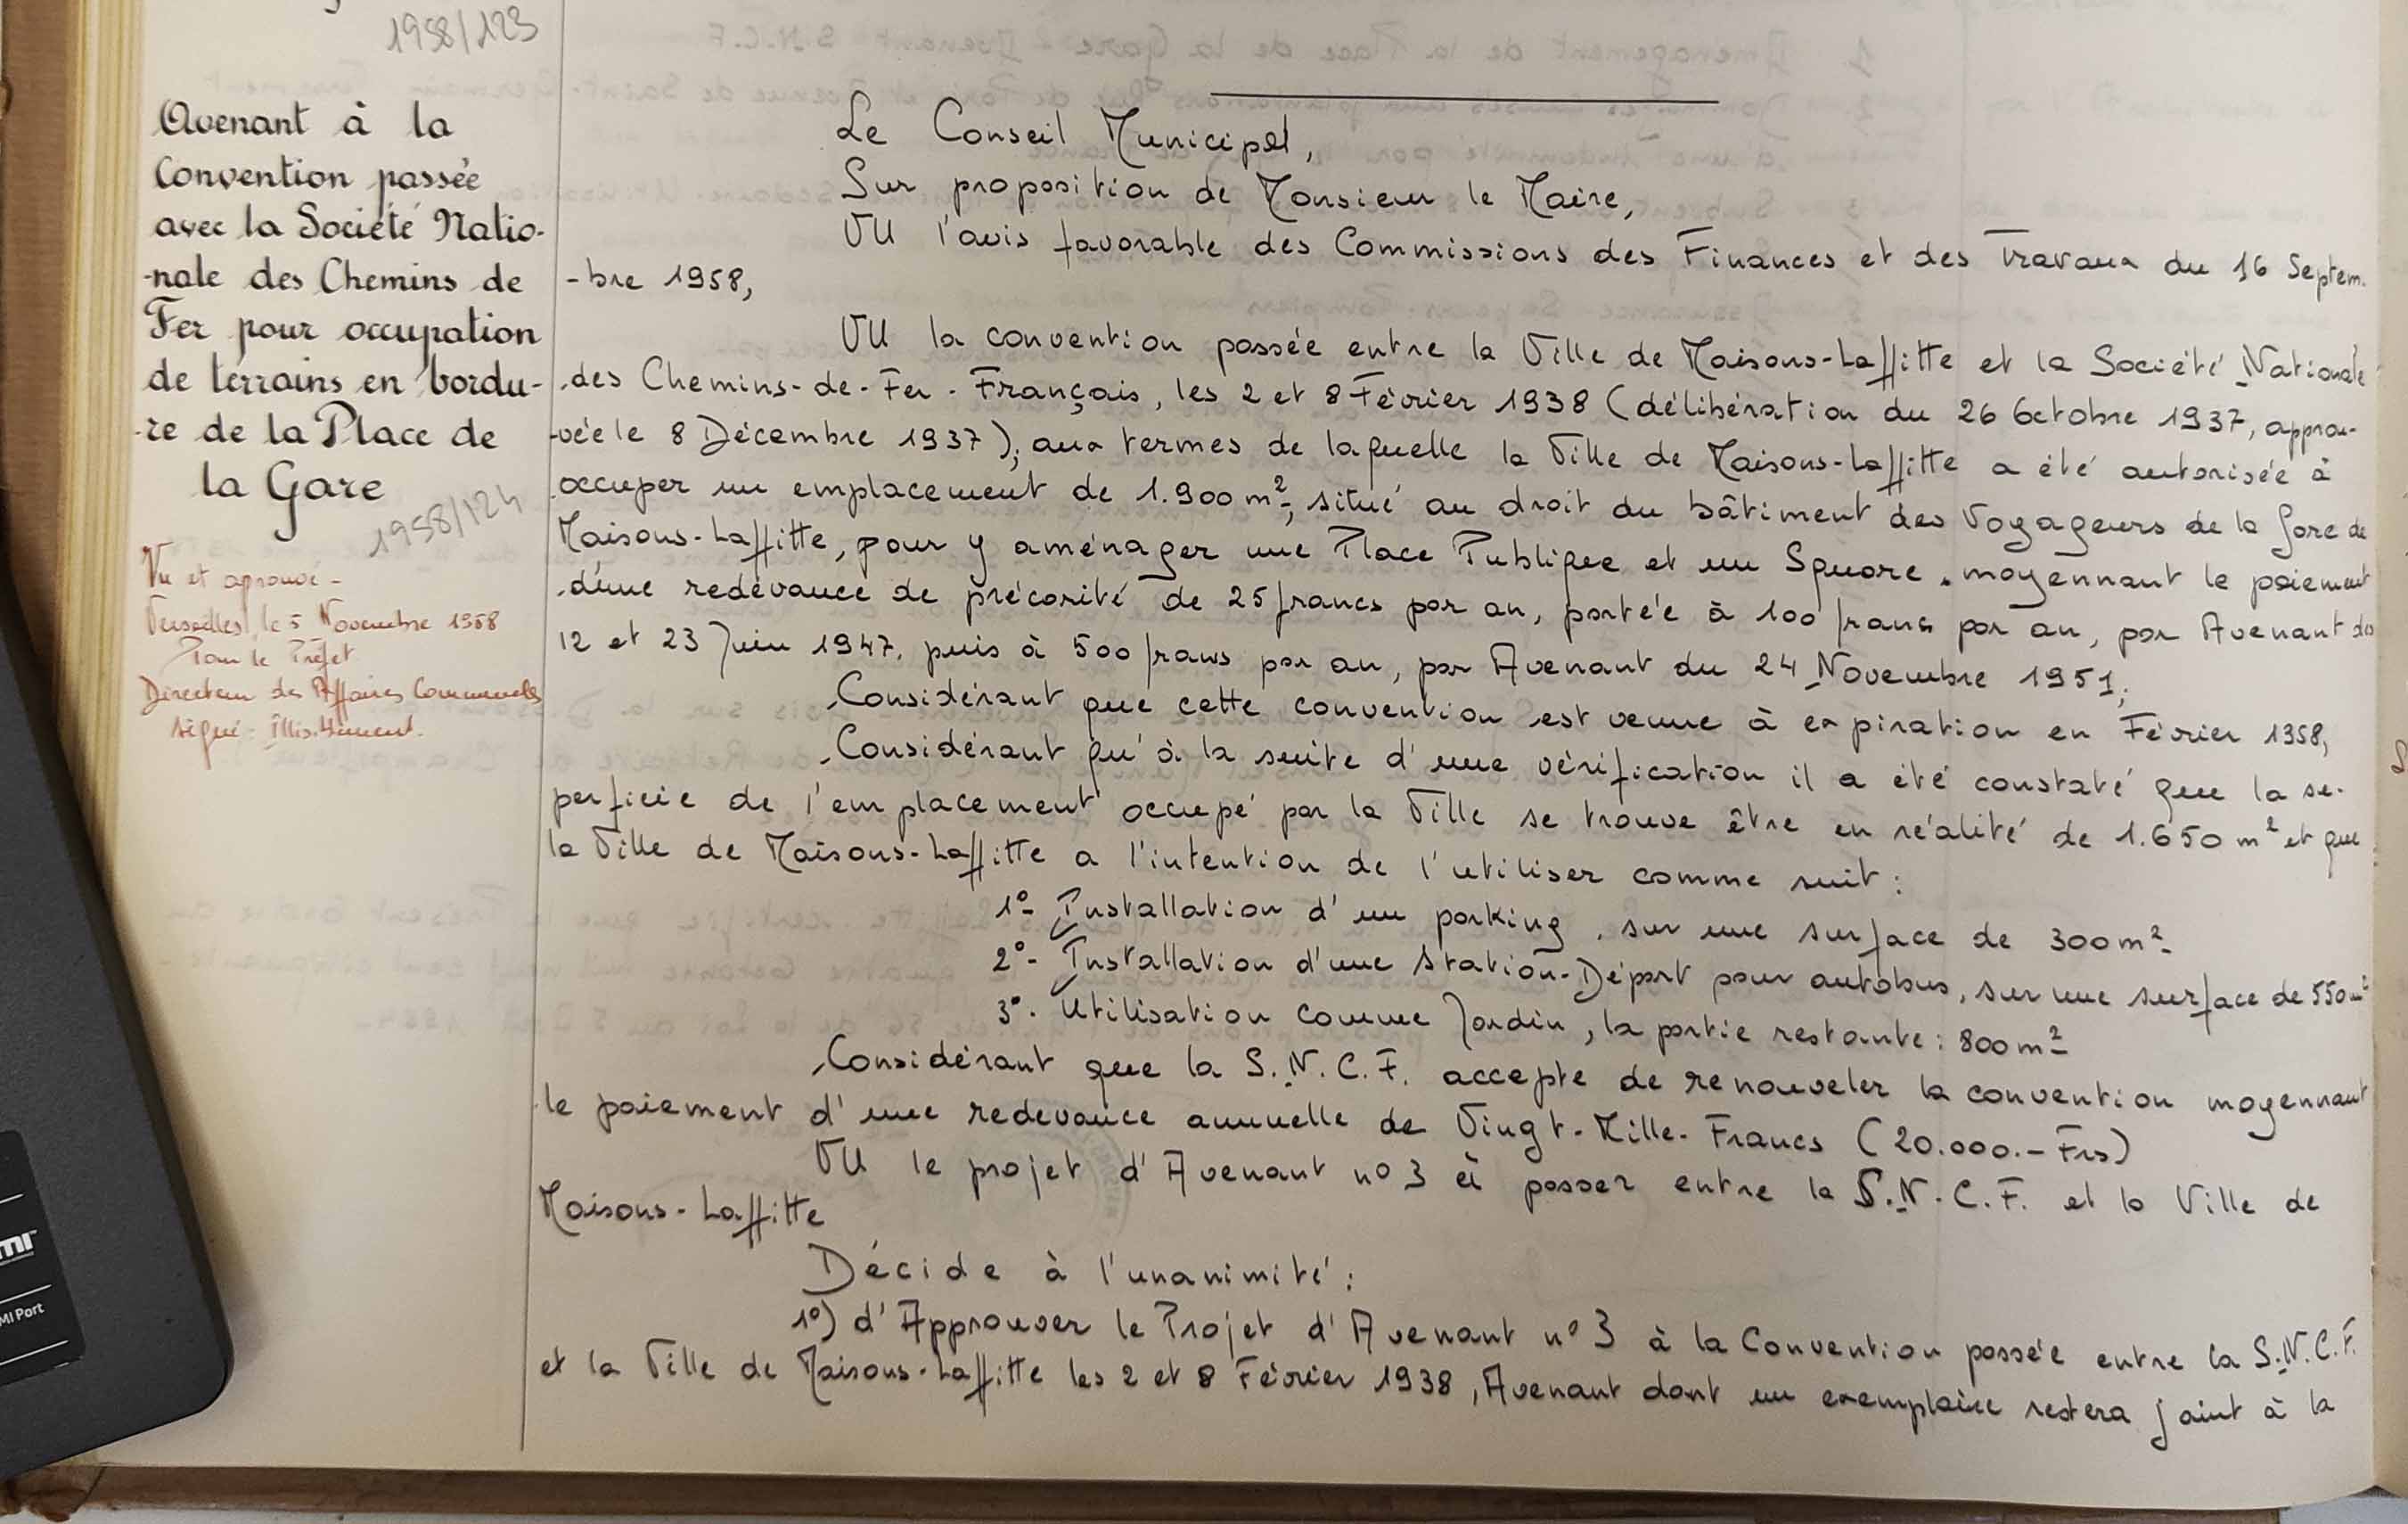 1958/123
Avenant à la
Convention passée
avec la Société Natio-
-nale des Chemins de
Fer pour occupation
de terrains en bordu-
-re de la Place de
la Gare
1958/124
Vu et aprouvé -
Versailles, le 5 Novembre 1958
Pour le Préfet
Directeur des Affaires Communales
signé:
Le Conseil Municipal,
Sur proposition de Monsieur le Maire,
VU l'avis favorable des Commissions des Finances et des Travaux du 16 Septem-
-bre 1958,
VU la convention passée entre la Ville de Maisons-Laffitte et la Société Nationale
des Chemins-de-Fer-Français, les 2 et 8 Février 1938 (délibération du 26 Octobre 1937, approu-
-vée le 8 Décembre 1937), aux termes de laquelle la Ville de Maisons-Laffitte a été autorisée à
occuper un emplacement de 1.900 m², situé au droit du bâtiment des Voyageurs de la Gare de
Maisons-Laffitte, pour y aménager une Place Publique et un Square, moyennant le paiement
d'une redevance de précarité de 25 francs par an, portée à 100 francs par an, par Avenant des
12 et 23 Juin 1947, puis à 500 francs par an, par Avenant du 24 Novembre 1951;
Considérant que cette convention est venue à expiration en Février 1958,
Considérant qu'à la suite d'une vérification il a été constaté que la su-
perficie de l'emplacement occupé par la Ville se trouve être en réalité de 1.650 m² et que
la Ville de Maisons-Laffitte a l'intention de l'utiliser comme suit :
1°- Installation d'un parking, sur une surface de 300 m²-
2°- Installation d'une Station-Départ pour autobus, sur une surface de 550 m²
3°- Utilisation comme Jardin, la partie restante : 800 m²-
Considérant que la S.N.C.F. accepte de renouveler la convention moyennant
le paiement d'une redevance annuelle de Vingt-Mille-Francs (20.000.- Frs)
VU le projet d'Avenant n° 3 à passer entre la S.N.C.F. et la Ville de
Maisons-Laffitte
Décide à l'unanimité :
1°) d'Approuver le Projet d'Avenant n° 3 à la Convention passée entre la S.N.C.F.
et la Ville de Maisons-Laffitte les 2 et 8 Février 1938, Avenant dont un exemplaire restera joint à la
MI Port